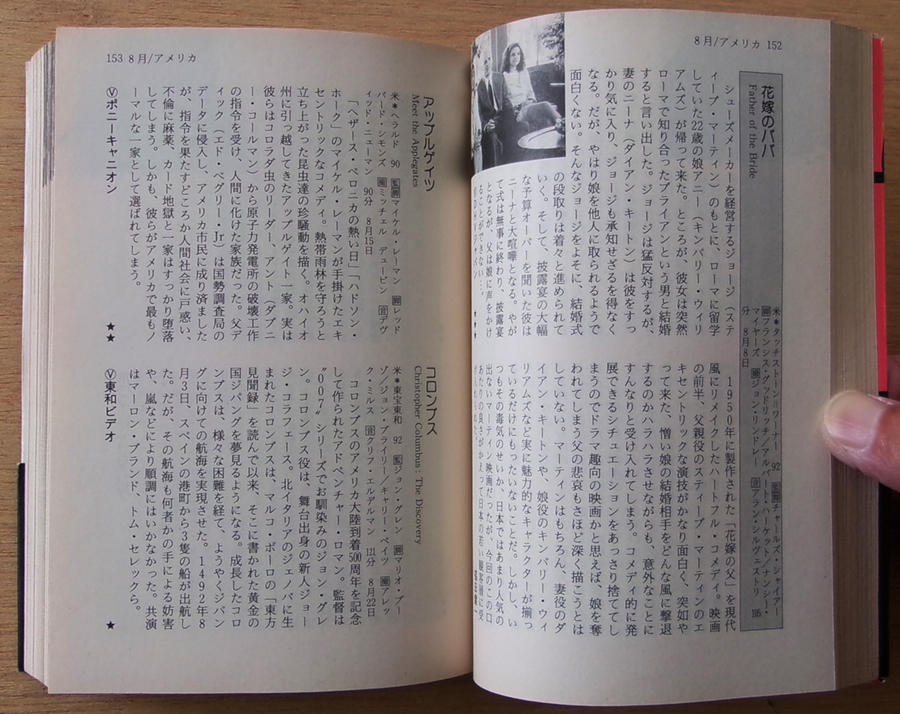 8月/アメリカ 152
花嫁のパパ
Father of the Bride
米＊タッチストーン＝ワーナー 92 監チャールズ・シャイアー
脚フランシス・グッドリッチ/アルバート・ハケット/ナンシー・
マイヤーズ 撮ジョン・リンドレー 音アラン・シルヴェストリ 105
分 8月8日
シューズメーカーを経営するジョージ（ステ
ィーブ・マーティン）のもとに、ローマに留学
していた22歳の娘アニー（キンバリー・ウィリ
アムズ）が帰って来た。ところが、彼女は突然
ローマで知り合ったブライアンという男と結婚
すると言い出した。ジョージは猛反対するが、
妻のニーナ（ダイアン・キートン）は彼をすっ
かり気に入り、ジョージも承知せざるを得なく
なる。だが、やはり娘を他人に取られるようで
面白くない。そんなジョージをよそに、結婚式
の段取りは着々と進められて
いく。そして、披露宴の大幅
な予算オーバーを聞いた彼は
ニーナと大喧嘩となる。やが
て式は無事に終わり、披露宴
となるが、父は娘に声をかけ
ることができない…。
1950年に製作された「花嫁の父」を現代
風にリメイクしたハートフル・コメディ。映画
の前半、父親役のスティーブ・マーティンのエ
キセントリックな演技がかなり面白く、突如や
って来た、憎い娘の結婚相手をどんな風に撃退
するのかハラハラさせながらも、意外なことに
すんなりと受け入れてしまう。コメディ的に発
展できるシチュエーションをあっさり捨ててし
まうのでドラマ趣向の映画かと思えば、娘を奪
われてしまう父の悲哀もさほど深く描こうとは
していない。マーティンはもちろん、妻役のダ
イアン・キートンや、娘役のキンバリー・ウィ
リアムズなど実に魅力的なキャラクターが揃っ
ているだけにもったいないことだ。しかし、い
つもその毒気のせいか、日本ではあまり人気の
出ないマーティン映画だったが、今回のこの口
あたりの良さがかえって日本の若い観客層に受
153 8月/アメリカ
アップルゲイツ
Meet the Applegates
米＊ヘラルド 90 監脚マイケル・レーマン 脚レッド
バード・シモンズ 撮ミッチェル・デュービン 音デヴ
ィッド・ニューマン 90分 8月15日
「ヘザース・ベロニカの熱い日」「ハドソン・
ホーク」のマイケル・レーマンが手掛けたエキ
セントリックなコメディ。熱帯雨林を守ろうと
立ち上がった昆虫達の珍騒動を描く。オハイオ
州に引っ越してきたアップルゲイト一家。実は
彼らはコロラダ虫のリーダー、アント（ダブニ
ー・コールマン）から原子力発電所の破壊工作
の指令を受け、人間に化けた家族だった。父デ
ィック（エド・ベグリー・Jr）は国勢調査局の
データに侵入し、アメリカ市民に成り済ました
が、指令を果たすどころか人間社会に戸惑い、
不倫に麻薬、カード地獄と一家はすっかり堕落
してしまう。しかも、彼らがアメリカで最もノ
ーマルな一家として選ばれてしまう。
★★
Ⓥポニーキャニオン
コロンブス
Christopher Columbus : The Discovery
米＊東宝東和 92 監ジョン・グレン 脚マリオ・プー
ゾ/ジョン・ブライリー/キャリー・ベイツ 撮アレッ
ク・ミルス 音クリフ・エルデルマン 121分 8月22日
コロンブスのアメリカ大陸到着500周年を記念
して作られたアドベンチャー・ロマン。監督は
“007”シリーズでお馴染みのジョン・グレ
ン。コロンブス役は、舞台出身の新人ジョー
ジ・コラフェース。北イタリアのジェノバに生
まれたコロンブスは、マルコ・ポーロの「東方
見聞録」を読んで以来、そこに書かれた黄金の
国ジパングを夢見るようになる。成長したコロ
ンブスは、様々な困難を経て、ようやくジパン
グに向けての航海を実現させた。1492年8
月3日、スペインの港町から3隻の船が出航し
た。だが、その航海も何者かの手による妨害
や、嵐などにより順調にはいかなかった。共演
はマーロン・ブランド、トム・セレックら。
★
Ⓥ東和ビデオ